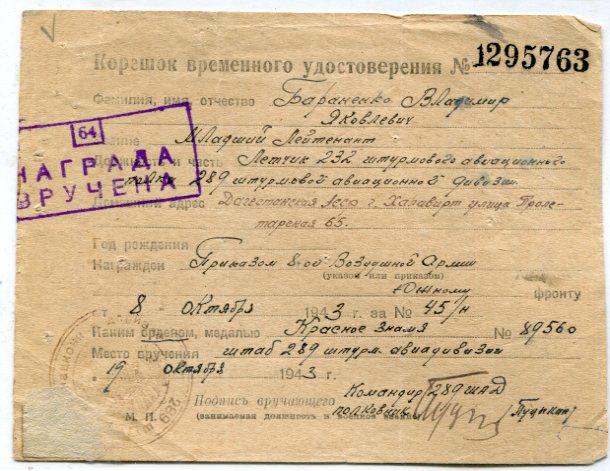 Корешок временного удостоверения № 1295763
Фамилия, имя, отчество Бараненко Владимир
Яковлевич
64
НАГРАДА
ВРУЧЕНА
Младший Лейтенант
Должность и часть Летчик 232 штурмового авиационного
полка 289 штурмовой авиационной дивизии
Домашний адрес Дагестанская АССР г. улица Проле-
тарская 65.
Год рождения
Награжден Приказом 8-ой Воздушной Армии
(указом или приказом)
Южному фронту
от 8 октября 1943 г. за № 45/н
Каким орденом, медалью Красное Знамя № 89560
Место вручения штаб 289 штурм. авиадивизии
19 октября 1943 г.
Подпись вручающего Командир 289 ШАД
полковник
М. П. (занимаемая должность и военное звание)